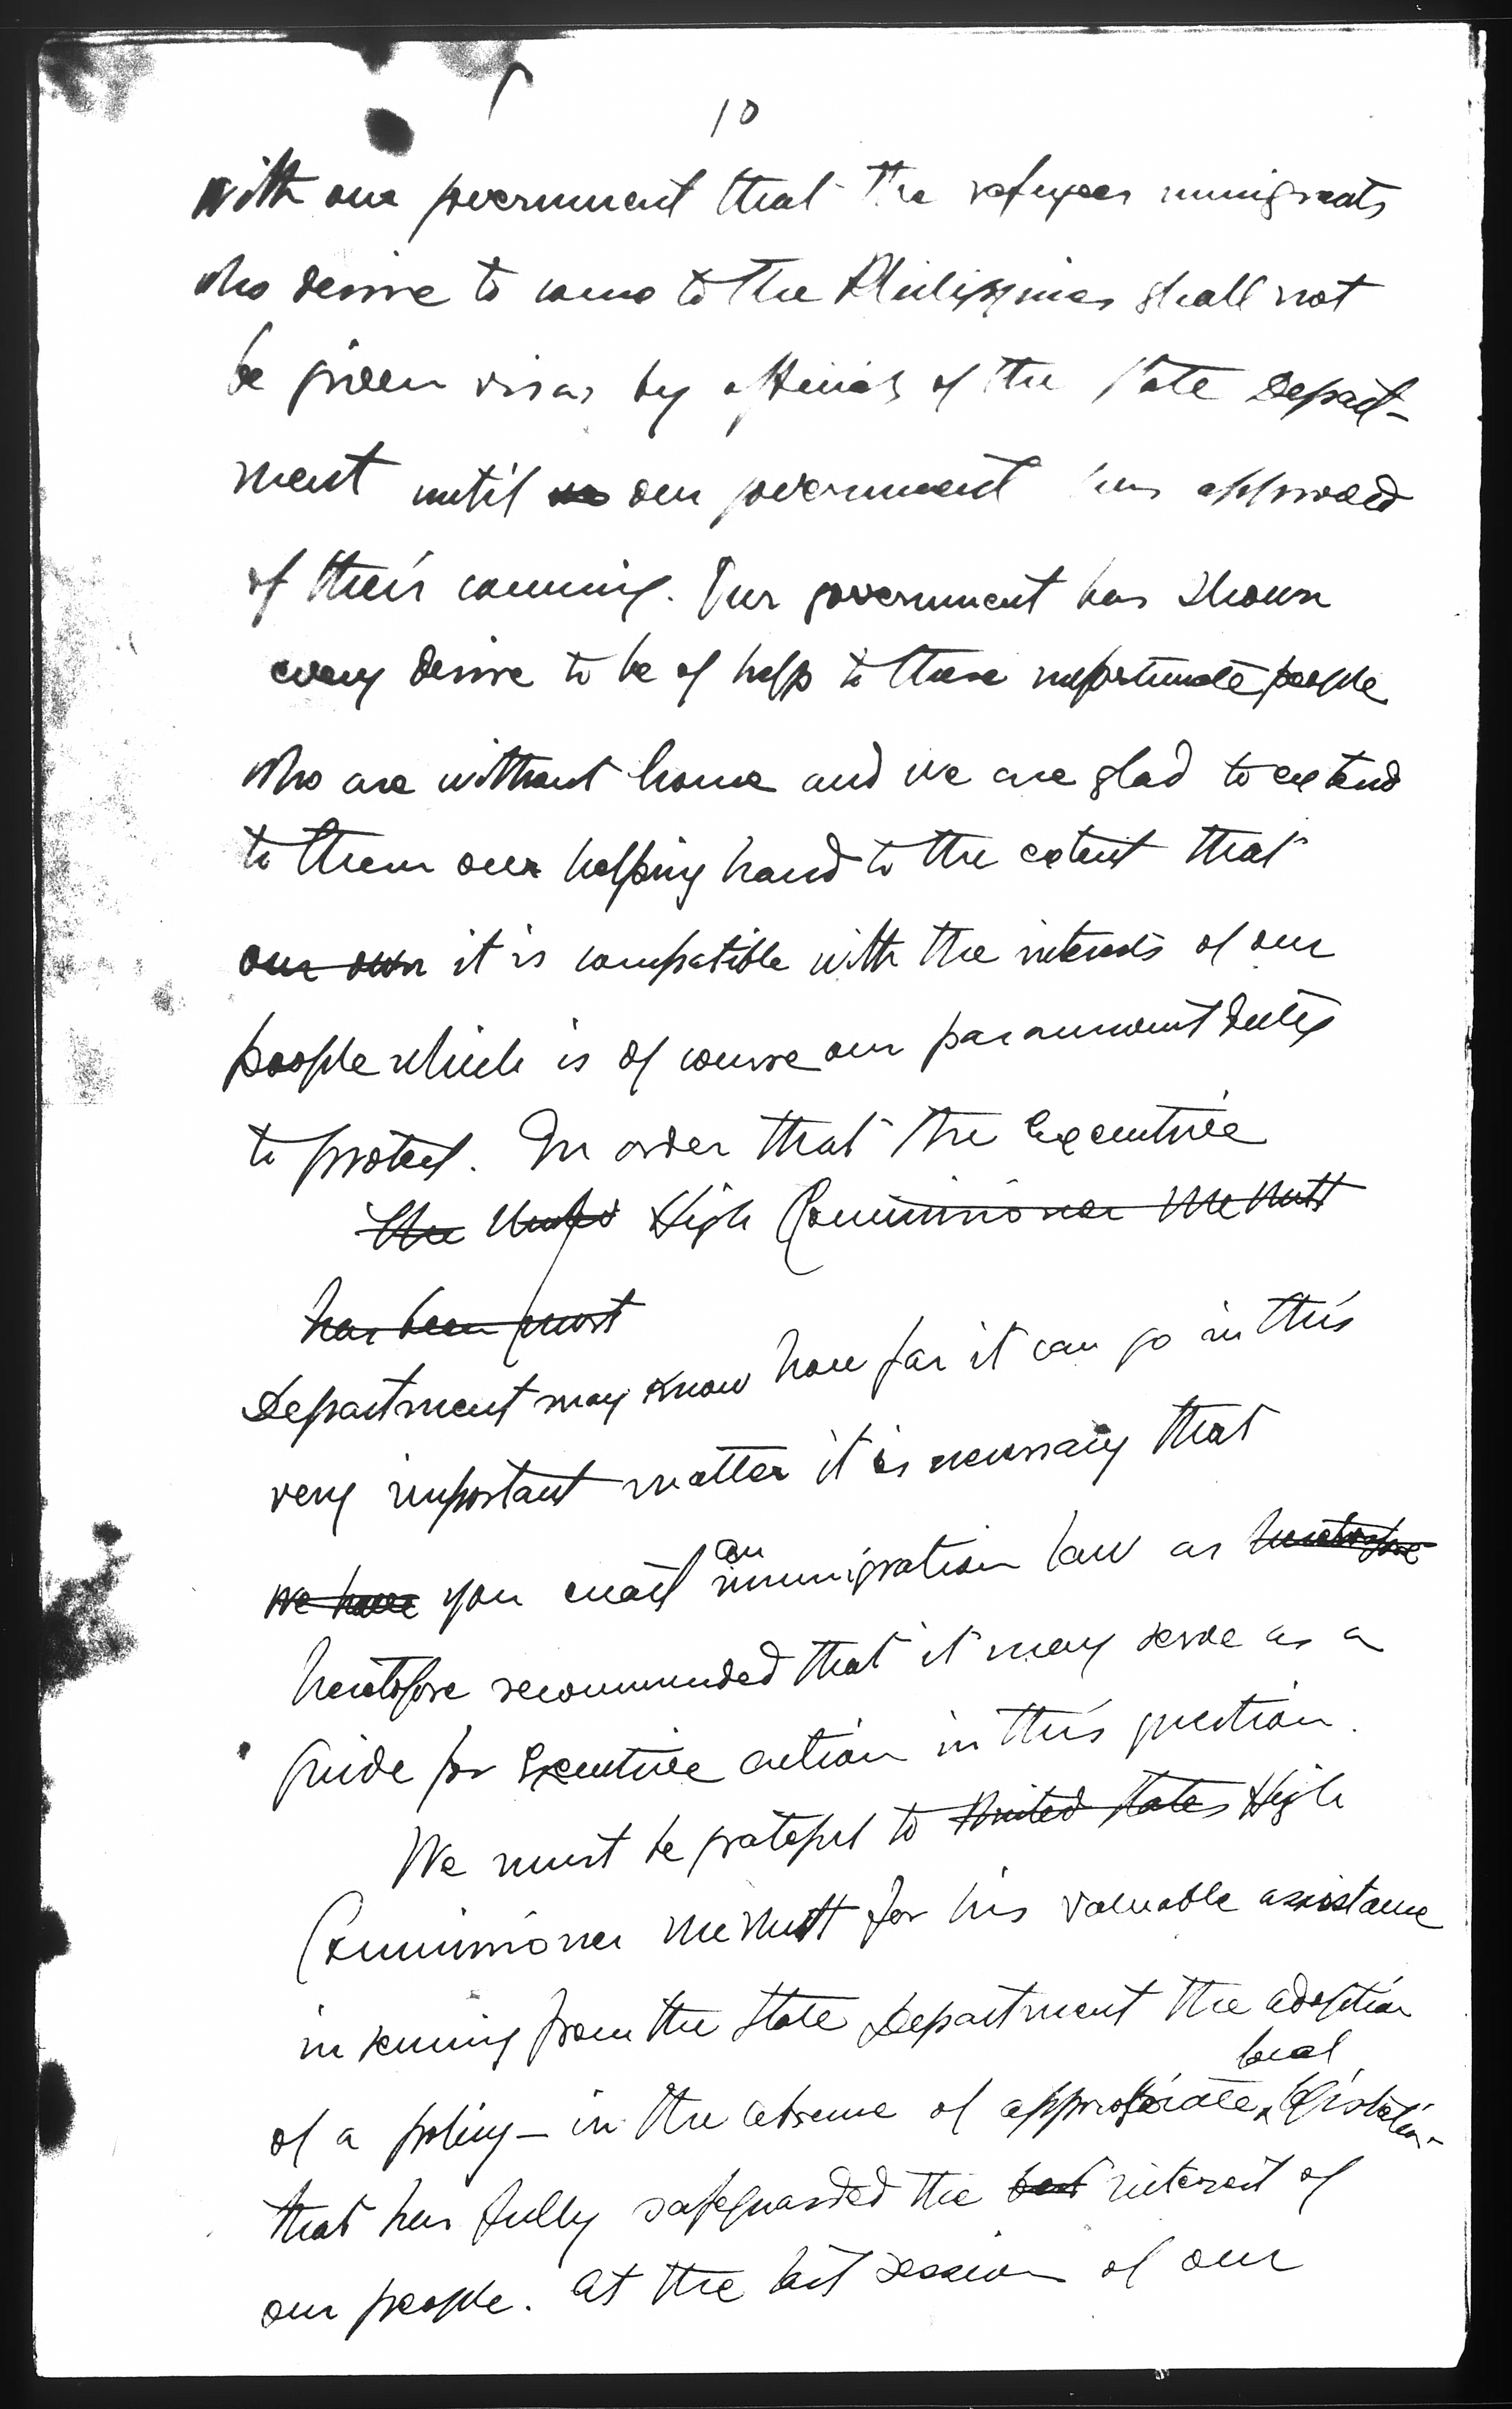 10
with our government that the refugees immigrants
who desire to come to the Philippines shall not
be given visas by officials of the State Depart-
ment until our government has approved
of their coming. Our government has shown
every desire to be of help to these unfortunate people
who are without home and we are glad to extend
to them our helping hand to the extent that
our own it is compatible with the interests of our
people which is of course our paramount duty
to protect. In order that the Executive
The United High Commissioner McNutt
has been most
Department may know how far it can go in this
very important matter it is necessary that
we have you enact an immigration law as heretofore
heretofore recommended that it may serve as a
guide for Executive action in this question.
We must be grateful to United States High
Commissioner McNutt for his valuable assistance
in securing from the State Department the adoption
local
of a policy - in the absence of appropriate legislation -
that has fully safeguarded the best interest of
our people. At the last session of our